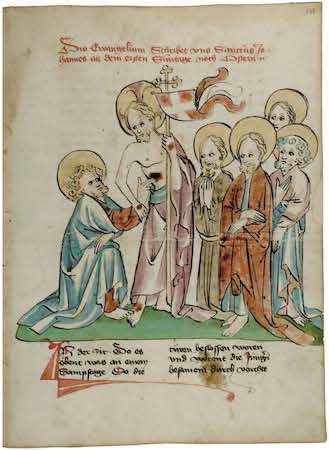 Dis Ewangelium Schribet vns Sanctus Jo
hannes an dem ersten Suntage noch Ostern
In der zit Do es
obent was an einem
Sampstage Do die
türen beslossen woren
vnd worent die
besament durch vorchte